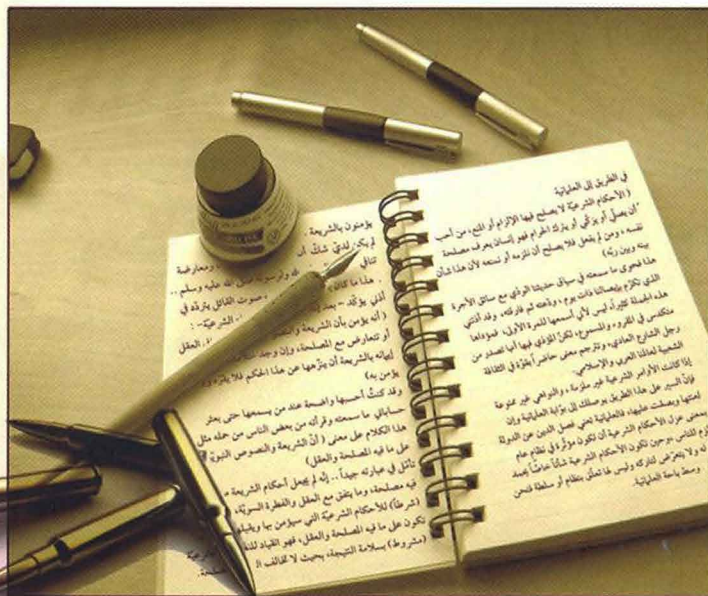 في الطريق إلى العلمانية
(الأحكام الشرعيّة لا يصلح فيها الإلزام أو المنع، من أحب
أن يصلّي أو يزكّي أو يترك الحرام فهو إنسان يعرف مصلحة
نفسه، ومن لم يفعل فلا يصلح أن نلزمه أو نمنعه لأن هذا شأن
بينه وبين ربّه)
هذا فحوى ما سمعته في سياق حديثنا الودّي مع سائق الأجرة
الذي تكرّم بإيصالنا ذات يوم، ودّعته ثم تركته، وقد آذتني
هذه الجملة كثيراً، ليس لأني أسمعها للمرة الأولى، فمؤداها
متكدس في المقروء والمسموع، لكنّ المؤذي فيها أنها تصدر من
رجل الشارع العادي، وتترجم معنى حاضراً بقوّة في الثقافة
الشعبية لعالمنا العربي والإسلامي.
إذا كانت الأوامر الشرعية غير ملزمة، والنواهي غير ممنوعة
فإنّ السير على هذا الطريق يوصلك إلى بوّابة العلمانية وإن
لعنتها وبصقت عليها، فالعلمانية تعني فصل الدين عن الدولة
بمعنى عزل الأحكام الشرعية أن تكون مؤثّرة في نظام عام
للناس، وحين تكون الأحكام الشرعية شأناً خاصّاً
له ولا يتعرّض لتاركه وليس لها تعلّق بنظام أو سلطة فنحن
وسط باحة العلمانية.
يؤمنون بالشريعة
لم يكن لديّ شكّ أن ومعارضة
تنافي الله ولرسوله صلى الله عليه وسلم ..
هذا ما كان صوت القائل يتردّد في
أذني يؤكّد - بعد الشرعيّة -:
(أنه يؤمن بأن الشريعة العقل
أو تتعارض مع المصلحة، وإن وجد
إيمانه بالشريعة أن ينزّهها عن هذا الحكم فلا
يؤمن به)
وقد كنتُ أحسبها واضحة عند من يسمعها حتى بعثر
حساباتي ما سمعته وقرأته من بعض الناس من حمله مثل
هذا الكلام على معنى (أنّ الشريعة والنصوص النبويّة
على ما فيه المصلحة والعقل)
تأمّل في عبارته جيداً .. إنّه لم يجعل أحكام الشريعة
فيه مصلحة، وما يتفق مع العقل والفطرة السويّة،
(شرطاً) للأحكام الشرعيّة التي سيؤمن بها
تكون على ما فيه المصلحة والعقل، فهو
(مشروط) بسلامة النتيجة، بحيث لا تخالف